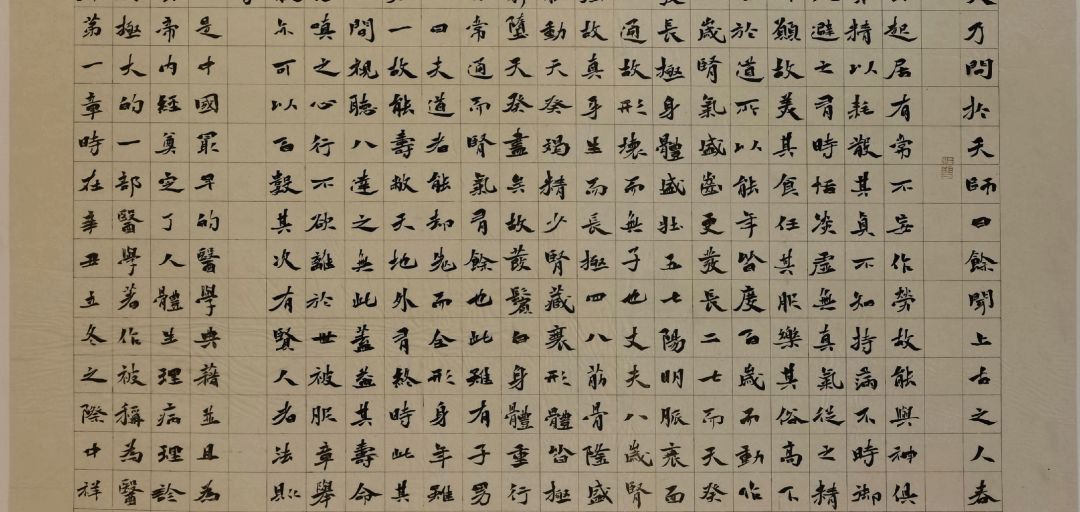 乃問於天師曰餘聞上古之人春
起居有常不妄作勞故能與神俱
精以耗散其真不知持滿不時御
避之有時恬淡虛無真氣從之精
願故美其食任其服樂其俗高下
於道所以能年皆度百歲而動作
歲腎氣盛齒更發長二七而天癸
長極身體盛壯五七陽明脈衰面
通故形壞而無子也丈夫八歲腎
故真牙生而長極四八筋骨隆盛
動天癸竭精少腎藏衰形體皆極
墮天癸盡矣故髮鬢白身體重行
常通而腎氣有餘也此雖有子男
曰夫道者能卻老而全形身年雖
一故能壽敝天地外有終時此其
間視聽八達之無此蓋益其壽命
嗔之心行不欲離於世被服章舉
亦可以百數其次有賢人者法則
是中國最早的醫學典籍並且為
帝內經奠定了人體生理病理診
極大的一部醫學著作被稱為醫
第一章時在辛丑立冬之際中祥